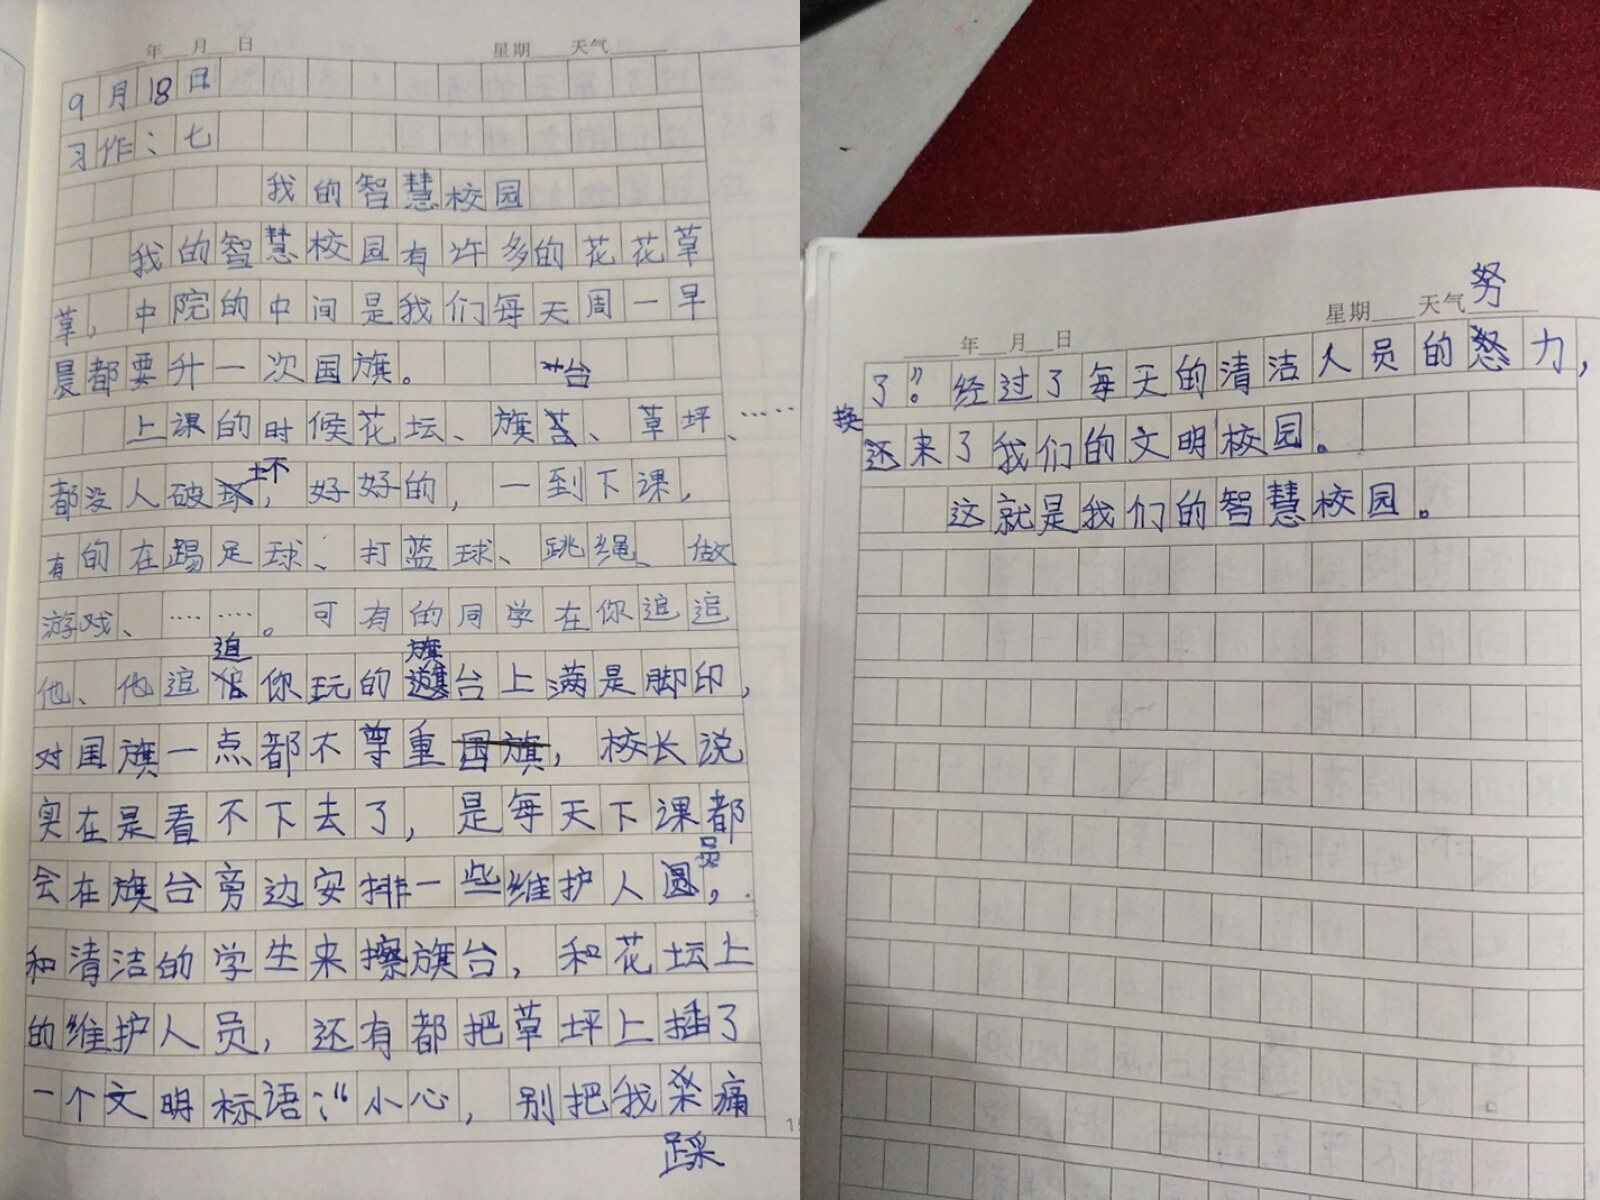 年 月 日 星期 天气
9月18日
习作：七
我的智慧校园
我的智慧校园有许多的花花草
草，中院的中间是我们每天周一早
晨都要升一次国旗。
上课的时候花坛、旗台、草坪、……
都没人破坏，好好的，一到下课，
有的在踢足球、打蓝球、跳绳、做
游戏、……。可有的同学在你追追
他、他追追你玩的旗台上满是脚印，
对国旗一点都不尊重国旗，校长说
实在是看不下去了，是每天下课都
会在旗台旁边安排一些维护人员，
和清洁的学生来擦旗台，和花坛上
的维护人员，还有都把草坪上插了
一个文明标语：“小心，别把我踩痛
年 月 日 星期 天气
了”。经过了每天的清洁人员的努力，
换来了我们的文明校园。
这就是我们的智慧校园。